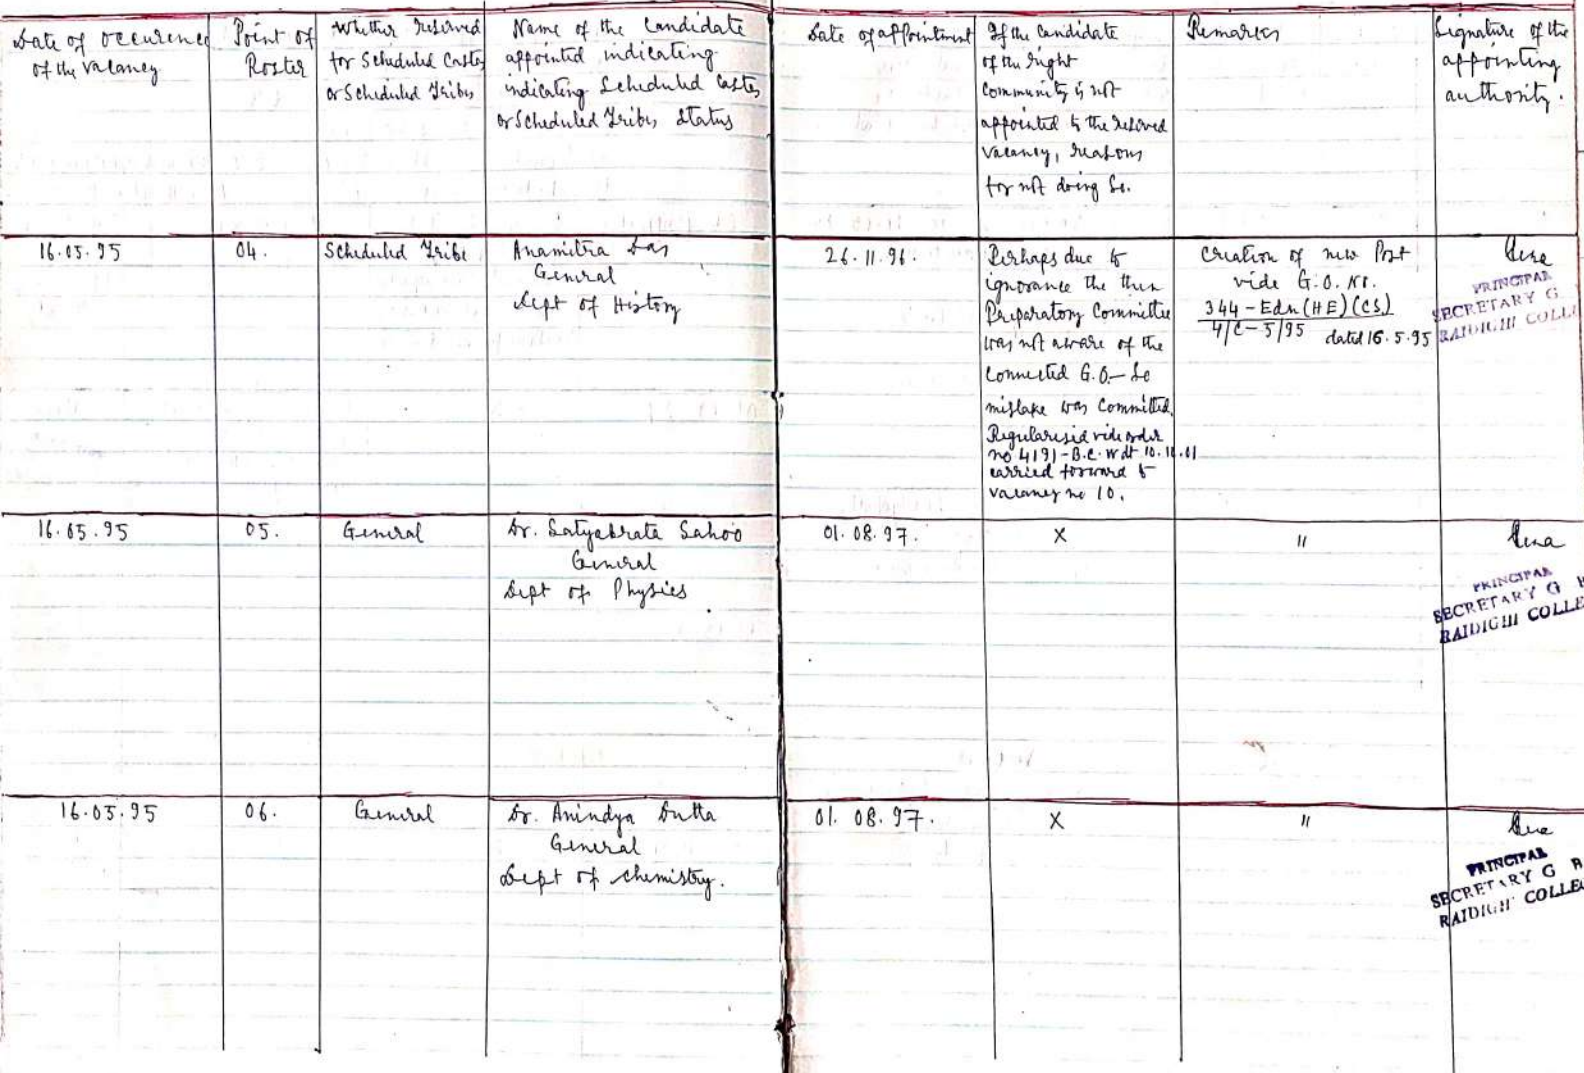 Date of occurence
of the vacancy
Point of
Roster
Whether reserved
for Scheduled Castes
or Scheduled Tribes
Name of the Candidate
appointed indicating
indicating Scheduled Castes
or Scheduled Tribes Status
Date of appointment
If the Candidate
of the right
Community is not
appointed to the reserved
vacancy, reasons
for not doing so.
Remarks
Signature of the
appointing
authority.
16.05.95
04.
Scheduled Tribe
Anamitra Das
General
Dept of History
26.11.96.
Perhaps due to
ignorance the then
Preparatory Committee
was not aware of the
connected G.O.— So
mistake was Committed.
Regularised vide order
no 4191-B.C.W dt 10.10.01
carried forward to
vacancy no 10.
Creation of new Post
vide G.O. No.
344-Edn(HE)(CS)
4/C-5/95 dated 16.5.95
PRINCIPAL
SECRETARY G
RAIDIGHI COLLE
16.05.95
05.
General
Dr. Satyabrata Sahoo
General
Dept of Physics
01.08.97.
X
"
PRINCIPAL
SECRETARY G
RAIDIGHI COLLE
16.05.95
06.
General
Dr. Anindya Dutta
General
Dept of Chemistry.
01.08.97.
X
"
PRINCIPAL
SECRETARY G
RAIDIGHI COLLE